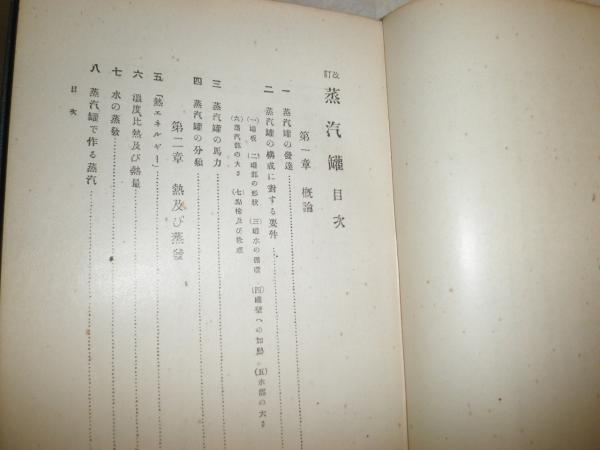 改訂 蒸汽罐 目次
第一章 概論
一 蒸汽罐の發達
二 蒸汽罐の構成に對する要件
(一)罐板 (二)罐部の形狀 (三)罐水の循環 (四)罐壁への加熱 (五)水部の大さ
(六)蒸汽部の大さ (七)點檢及び
三 蒸汽罐の馬力
四 蒸汽罐の分類
第二章 熱及び蒸發
五 「熱エネルギー」
六 溫度比熱及び熱量
七 水の蒸發
八 蒸汽罐で作る蒸汽
目次